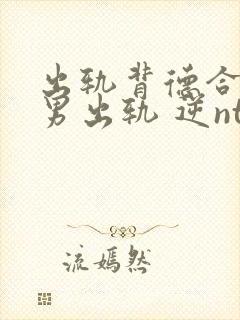 出轨背德合
男出轨 逆nt
流嫣然